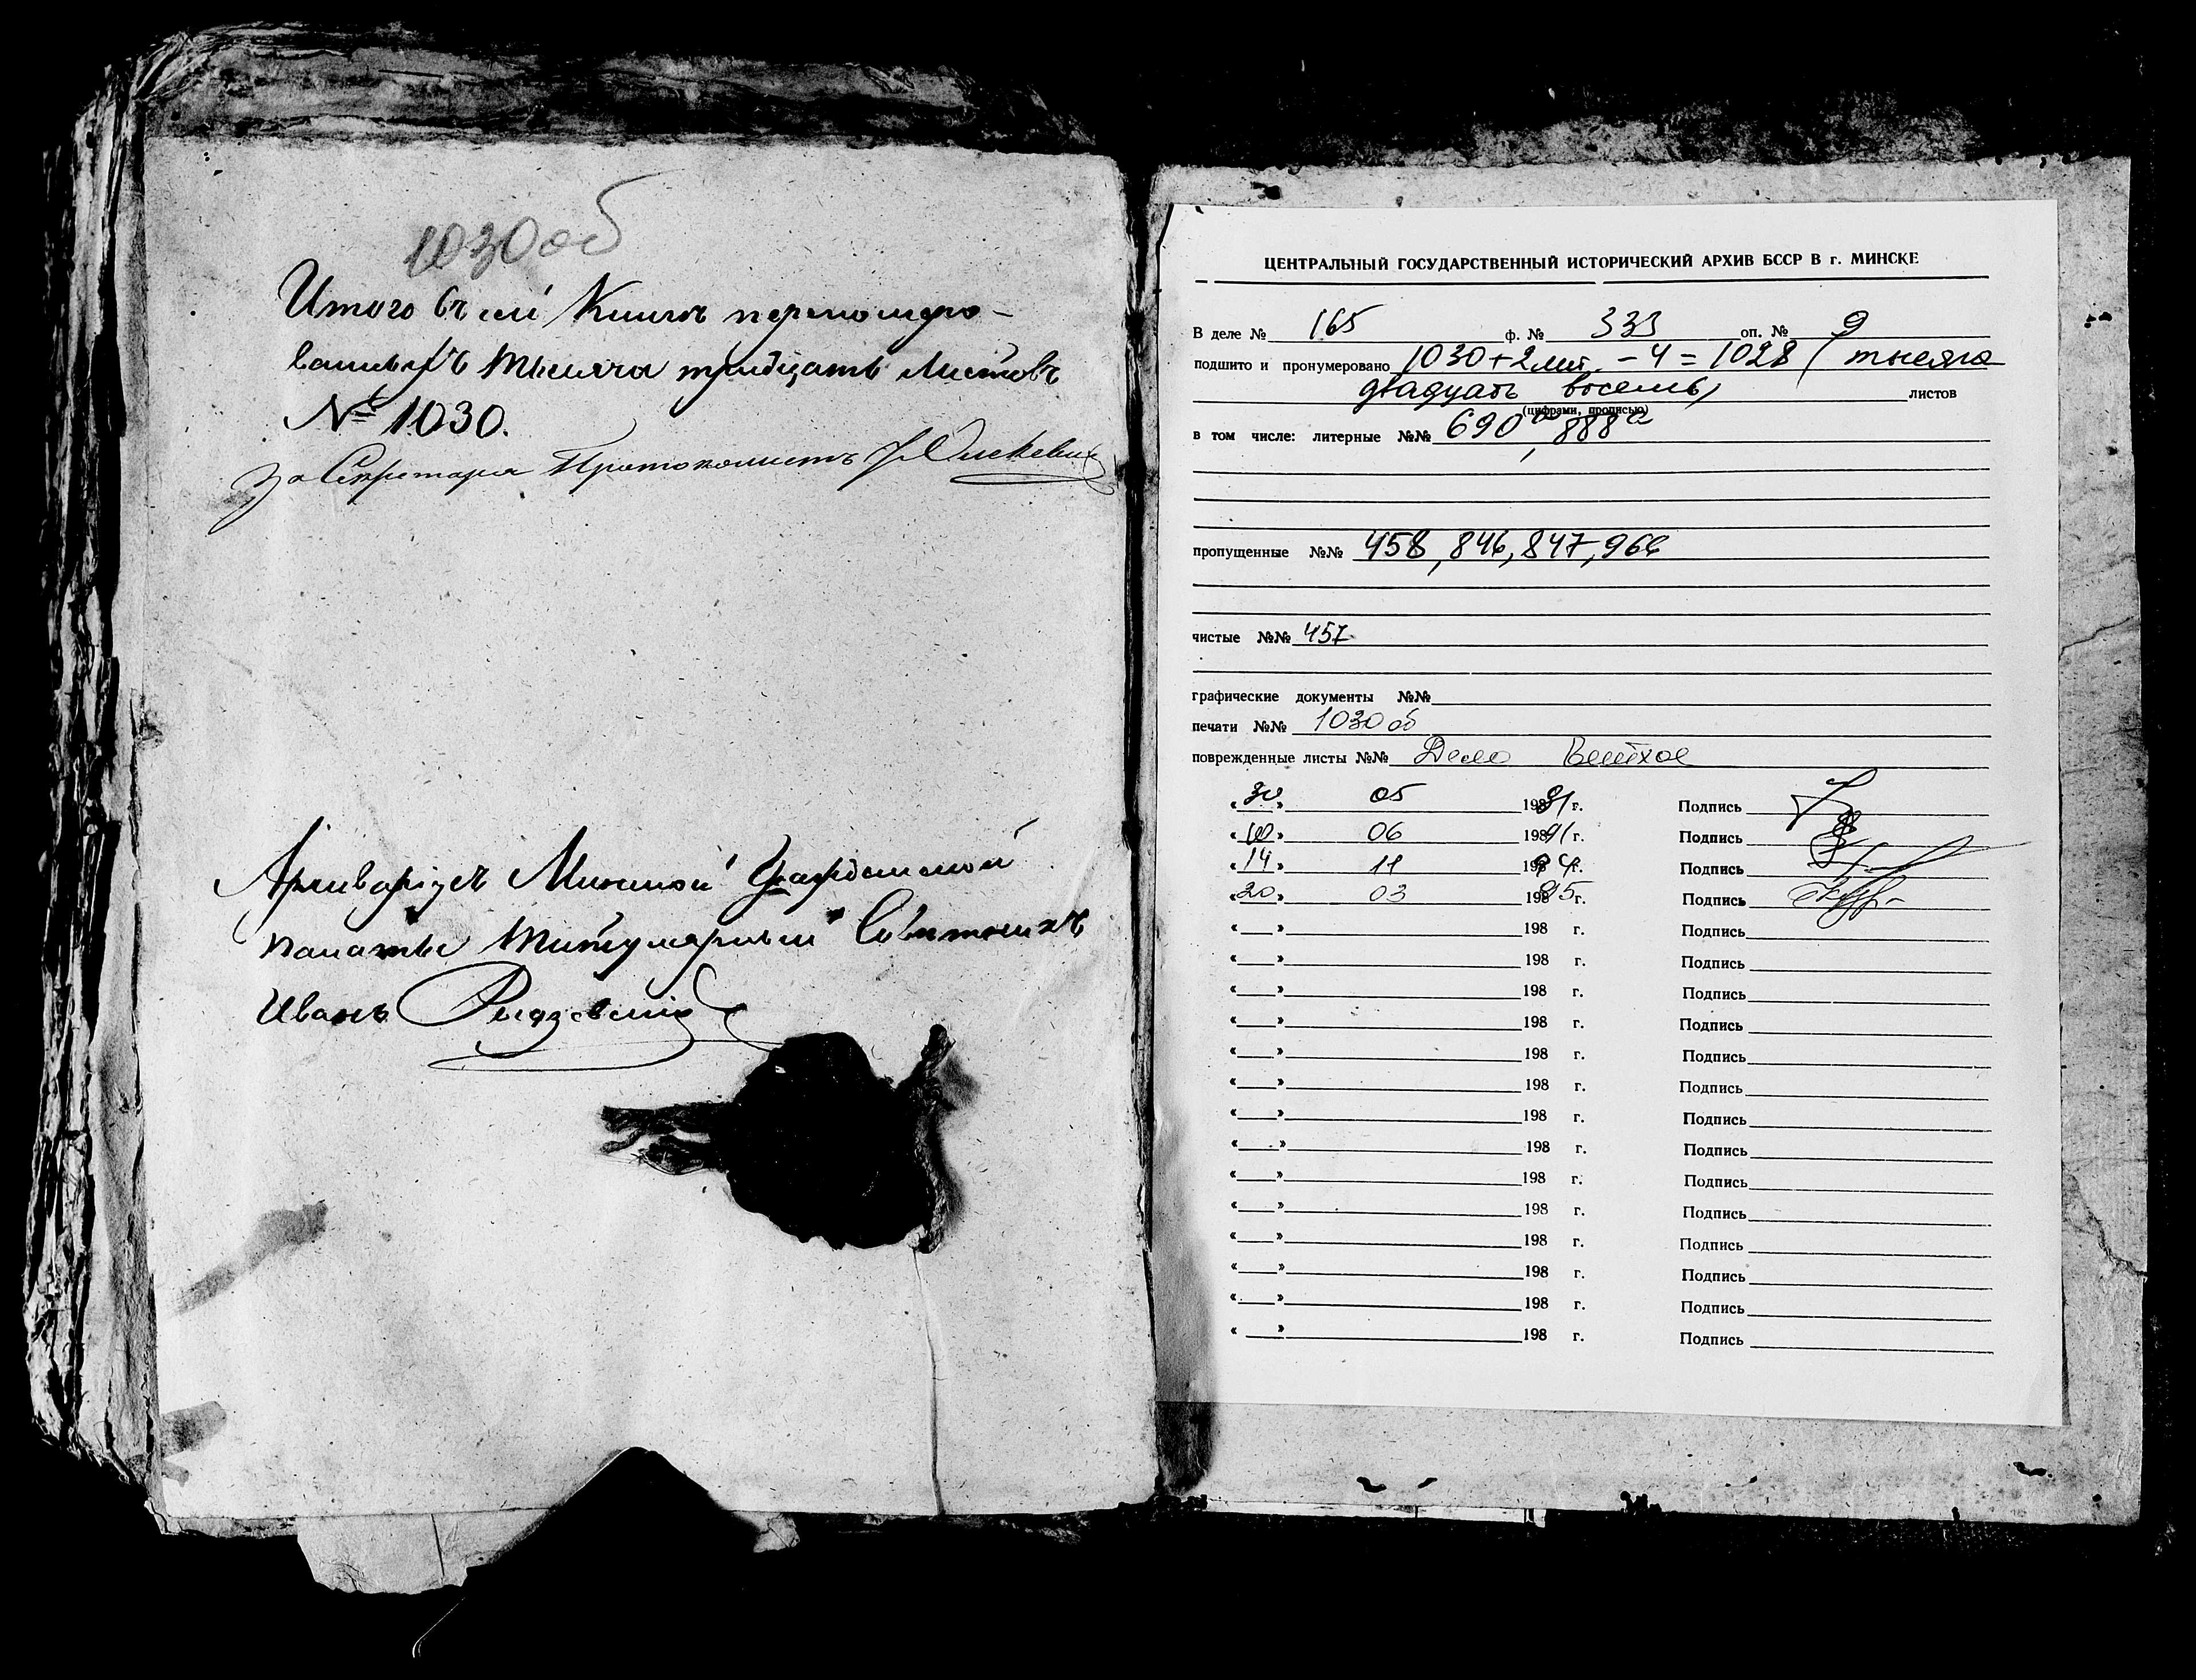 1030 об
Итого въ сей Книгѣ перенумеро-
ванныхъ тысяча тридцать листовъ
№ 1030.
За Секретаря Протоколистъ
Архиваріусъ Минской Гражданской
палаты Титулярный Совѣтникъ
Иванъ
ЦЕНТРАЛЬНЫЙ ГОСУДАРСТВЕННЫЙ ИСТОРИЧЕСКИЙ АРХИВ БССР В г. МИНСКЕ
В деле № 165 ф. № 333 оп. № 9
подшито и пронумеровано 1030 + 2 лит. - 4 = 1028 ( тысяча
двадцать восемь) листов
(цифрами, прописью)
в том числе: литерные №№ 690а, 888а
пропущенные №№ 458, 846, 847, 966
чистые №№ 457
графические документы №№
печати №№ 1030 об
поврежденные листы №№ Дело Ветхое
« 30 » 05 1991 г. Подпись
« 10 » 06 1991 г. Подпись
« 14 » 11 1994 г. Подпись
« 20 » 03 1995 г. Подпись
« » 198 г. Подпись
« » 198 г. Подпись
« » 198 г. Подпись
« » 198 г. Подпись
« » 198 г. Подпись
« » 198 г. Подпись
« » 198 г. Подпись
« » 198 г. Подпись
« » 198 г. Подпись
« » 198 г. Подпись
« » 198 г. Подпись
« » 198 г. Подпись
« » 198 г. Подпись
« » 198 г. Подпись